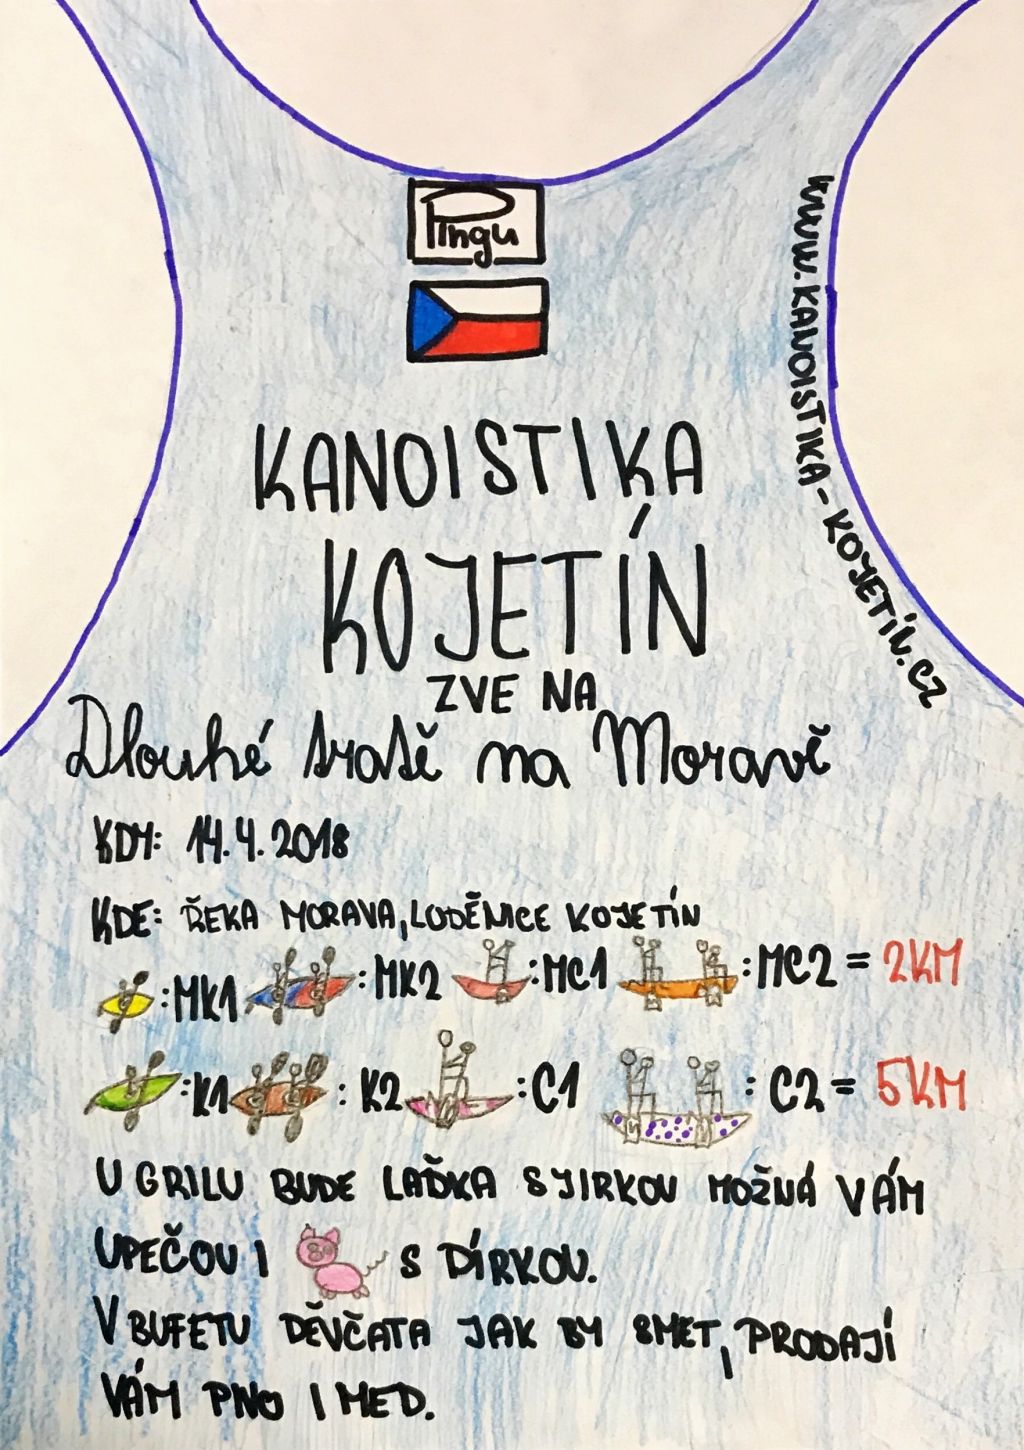 Pingu
www.KANOISTIKA-KOJETÍN.CZ
KANOISTIKA
KOJETÍN
ZVE NA
Dlouhé tratě na Moravě
KDY: 14.4.2018
KDE: ŘEKA MORAVA, LODĚNICE KOJETÍN
:MK1 :MK2 :MC1 :MC2 = 2KM
:K1 : K2 :C1 : C2 = 5KM
U GRILU BUDE LAĎKA S JIRKOU MOŽNÁ VÁM
UPEČOU I S DÍRKOU.
V BUFETU DĚVČATA JAK BY SMET, PRODAJÍ
VÁM PNO I MED.